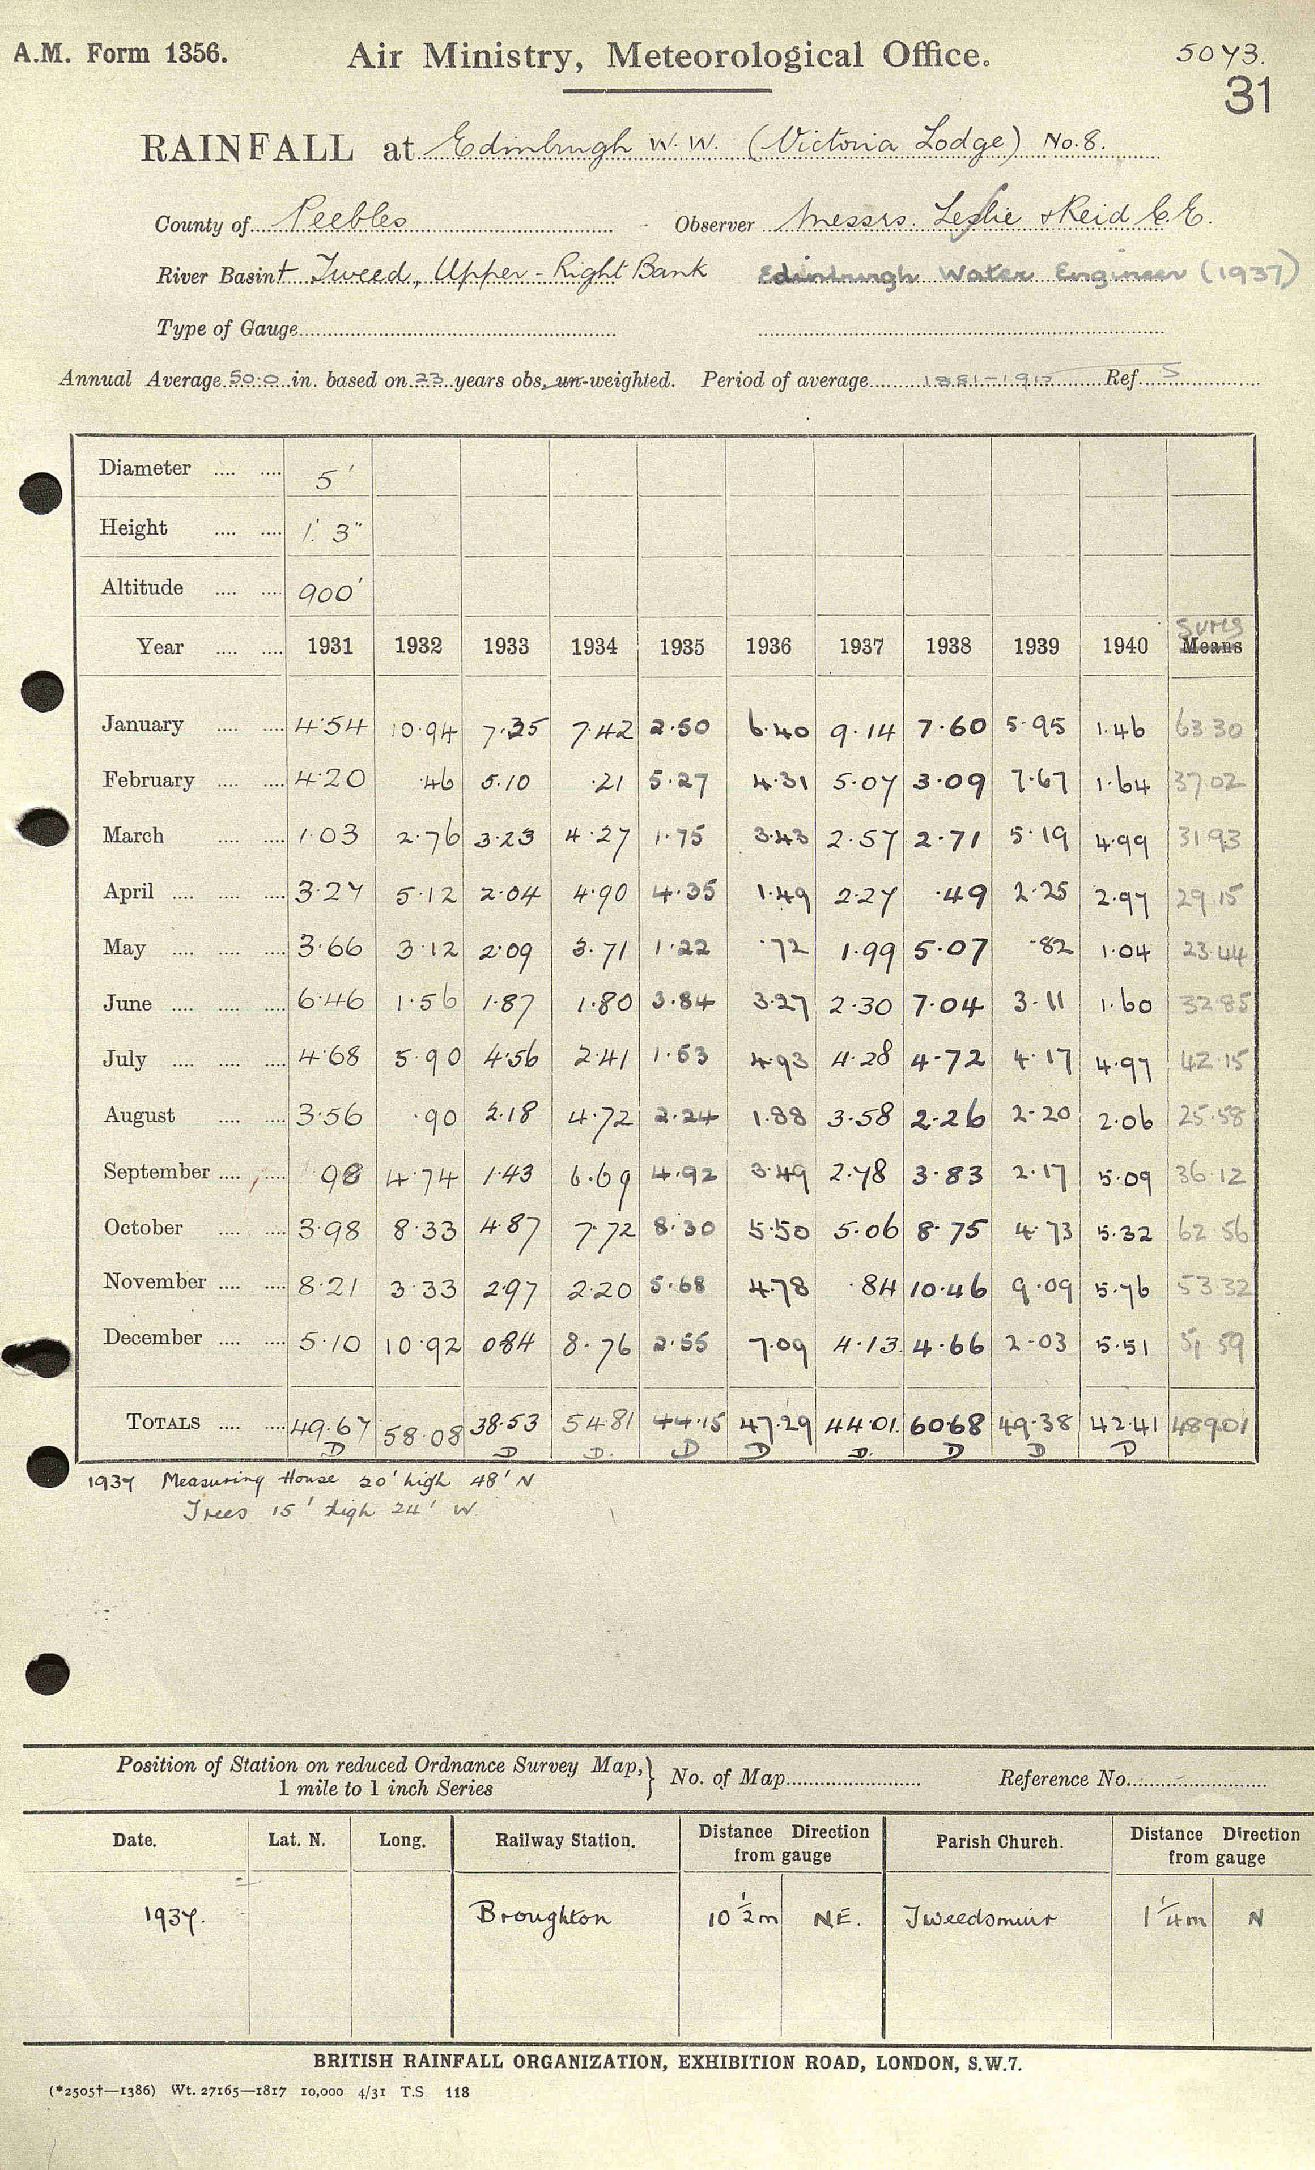 A.M. Form 1356.
Air Ministry, Meteorological Office.
5073.
31
RAINFALL at Edinburgh W.W. (Victoria Lodge) No. 8.
County of Peebles Observer Messrs. Leslie & Reid C.E.
River Basin Tweed, Upper - Right Bank Edinburgh Water Engineer (1937)
Type of Gauge
Annual Average 50.0 in. based on 23 years obs. un-weighted. Period of average Ref. S
Diameter 5'
Height 1' 3"
Altitude 900'
Year 1931 1932 1933 1934 1935 1936 1937 1938 1939 1940 Means Sums
January 4.54 10.94 7.35 7.42 2.50 6.40 9.14 7.60 5.95 1.46 63.30
February 4.20 .46 5.10 .21 5.27 4.31 5.07 3.09 7.67 1.64 37.02
March 1.03 2.76 3.23 4.27 1.75 3.43 2.57 2.71 5.19 4.99 31.93
April 3.27 5.12 2.04 4.90 4.35 1.49 2.27 .49 2.25 2.97 29.15
May 3.66 3.12 2.09 3.71 1.22 .72 1.99 5.07 .82 1.04 23.44
June 6.46 1.56 1.87 1.80 3.84 3.27 2.30 7.04 3.11 1.60 32.85
July 4.68 5.90 4.56 2.41 1.53 4.93 4.28 4.72 4.17 4.97 42.15
August 3.56 .90 2.18 4.72 2.24 1.88 3.58 2.26 2.20 2.06 25.58
September .98 4.74 1.43 6.69 4.92 3.49 2.78 3.83 2.17 5.09 36.12
October 3.98 8.33 4.87 7.72 8.30 5.50 5.06 8.75 4.73 5.32 62.56
November 8.21 3.33 2.97 2.20 5.68 4.78 .84 10.46 9.09 5.76 53.32
December 5.10 10.92 0.84 8.76 2.55 7.09 4.13 4.66 2.03 5.51 51.59
TOTALS 49.67 58.08 38.53 54.81 44.15 47.29 44.01 60.68 49.38 42.41 489.01
D D D. D D D. D D D
1937 Measuring House 20' high 48' N
Trees 15' high 24' W.
Position of Station on reduced Ordnance Survey Map, 1 mile to 1 inch Series } No. of Map Reference No.
Date. Lat. N. Long. Railway Station. Distance Direction from gauge Parish Church. Distance Direction from gauge
1937. Broughton 10 1/2 m NE. Tweedsmuir 1 1/4 m N
BRITISH RAINFALL ORGANIZATION, EXHIBITION ROAD, LONDON, S.W.7.
(*2505†—1386) Wt. 27165—1817 10,000 4/31 T.S 118